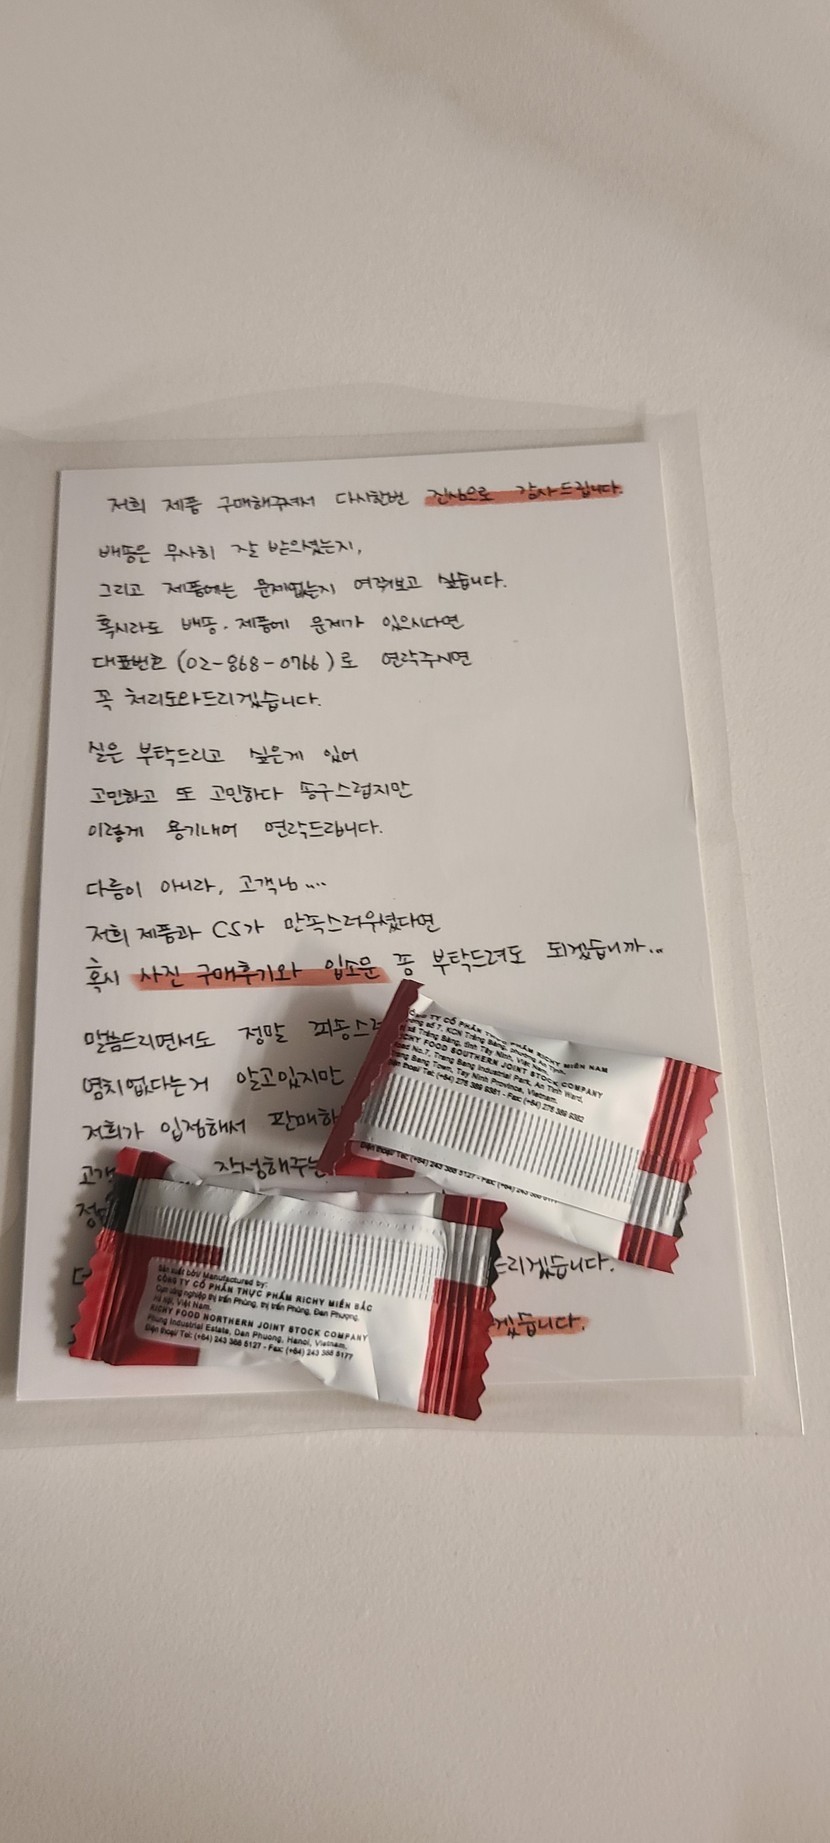 저희 제품 구매해주셔서 다시한번 진심으로 감사드립니다.
배송은 무사히 잘 받으셨는지,
그리고 제품에는 문제없는지 여쭤보고 싶습니다.
혹시라도 배송·제품에 문제가 있으시다면
대표번호 (02-868-0766)로 연락주시면
꼭 처리도와드리겠습니다.
실은 부탁드리고 싶은게 있어
고민하고 또 고민하다 송구스럽지만
이렇게 용기내어 연락드립니다.
다름이 아니라, 고객님....
저희 제품과 CS가 만족스러우셨다면
혹시 사진 구매후기와 입소문 좀 부탁드려도 되겠습니까...
말씀드리면서도 정말 죄송스
염치없다는거 알고있지만
저희가 입점해서 판매하
고객 작성해주는
드리겠습니다.
겠습니다.
TY CỔ PHẦN MIỀN NAM
số 7, KCN Trảng Bàng,
Trảng Bàng, tỉnh Tây Ninh, Việt Nam.
RICHY FOOD SOUTHERN JOINT STOCK COMPANY
Road No.7, Trang Bang Industrial Park, An Tinh Ward,
Trang Bang Town, Tay Ninh Province, Vietnam.
Điện thoại/ Tel: (+84) 276 389 9381 - Fax: (+84) 276 389 9382
Điện thoại/ Tel: (+84) 243 388 5127 - Fax: (+84) 243 388
Sản xuất bởi/ Manufactured by:
CÔNG TY CỔ PHẦN THỰC PHẨM RICHY MIỀN BẮC
Cụm công nghiệp thị trấn Phùng, thị trấn Phùng, Đan Phượng,
Hà Nội, Việt Nam.
RICHY FOOD NORTHERN JOINT STOCK COMPANY
Phung Industrial Estate, Dan Phuong, Hanoi, Vietnam.
Điện thoại/ Tel: (+84) 243 388 5127 - Fax: (+84) 243 388 5177